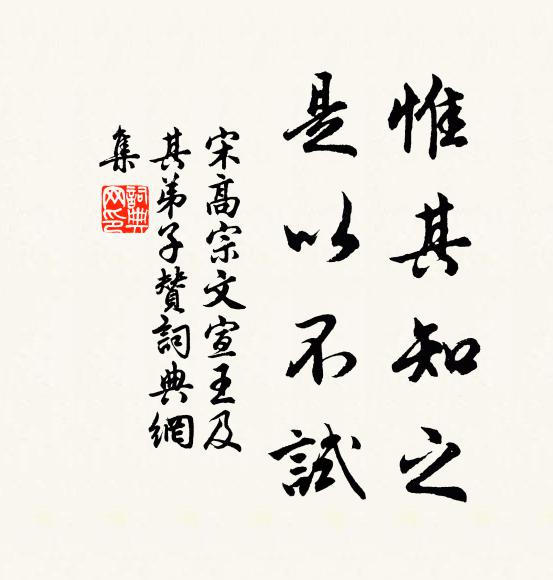 惟其知之
是以不試
宋高宗文宣王及
其弟子贊詞典網
集
詞典
网印